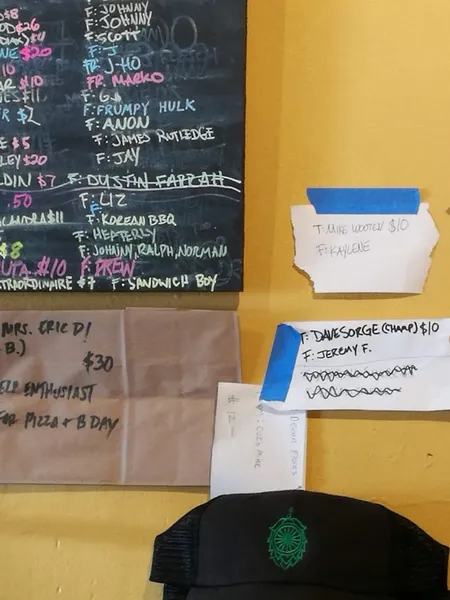 $8 F: JOHNNY
$26 F: JOHNNY
$4 F: SCOTT
$20 F: J
10 FR: J-HO
$10 FR: MARKO
$11
R $2 F: FRUMPY HULK
F: ANON
E $5 F: JAMES RUTLEDGE
LEY $20 F: JAY
DIN $7 F: DUSTIN FARRAH
50 F: LIZ
$11 F: KOREAN BBQ
F: HEATERLY
$8 F: JOHNNY, RALPH, NORMAN
UTA $10 F: DREW
TRAORDINAIRE $7 F: SANDWICH BOY
T: MIKE WOOTEN $10
F: KAYLENE
MRS. ERIC D!
B.)
$30
ELF ENTHUSIAST
FOR PIZZA + BDAY
T: DAVE SORGE (CHAMP) $10
F: JEREMY F.
$ 12